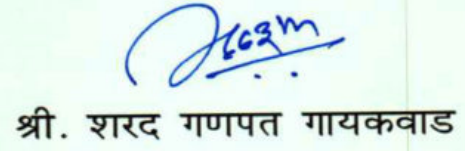 श्री. शरद गणपत गायकवाड